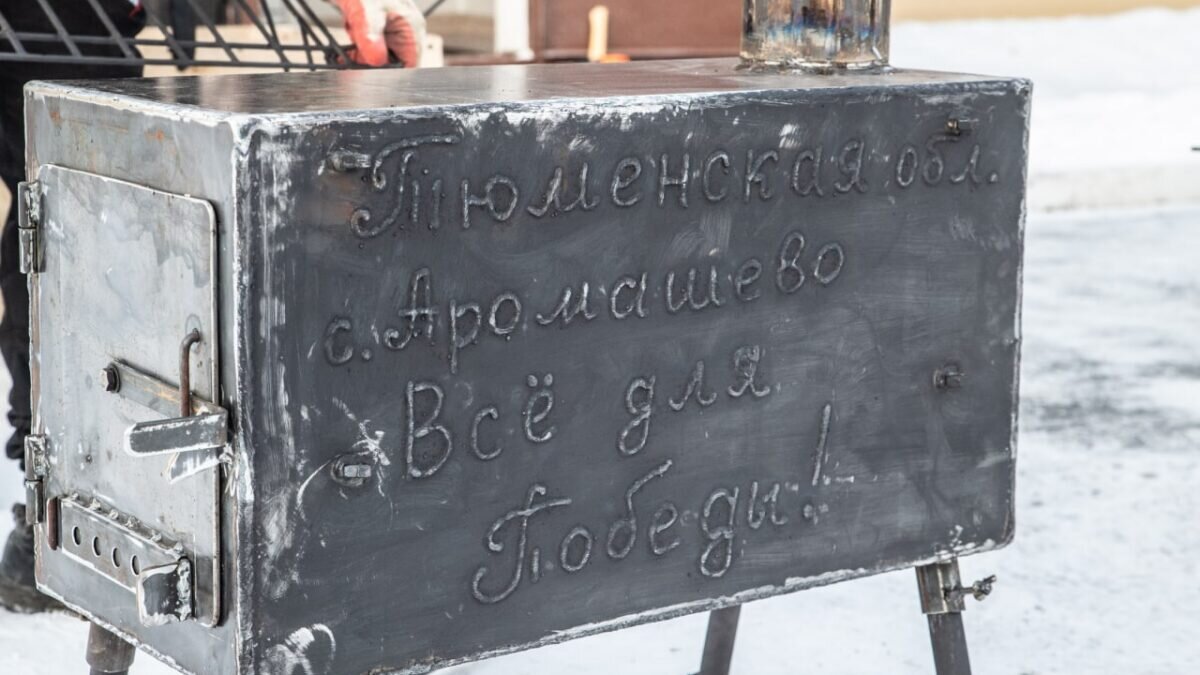 Тюменская обл.
с. Аромашево
Всё для
Победы!